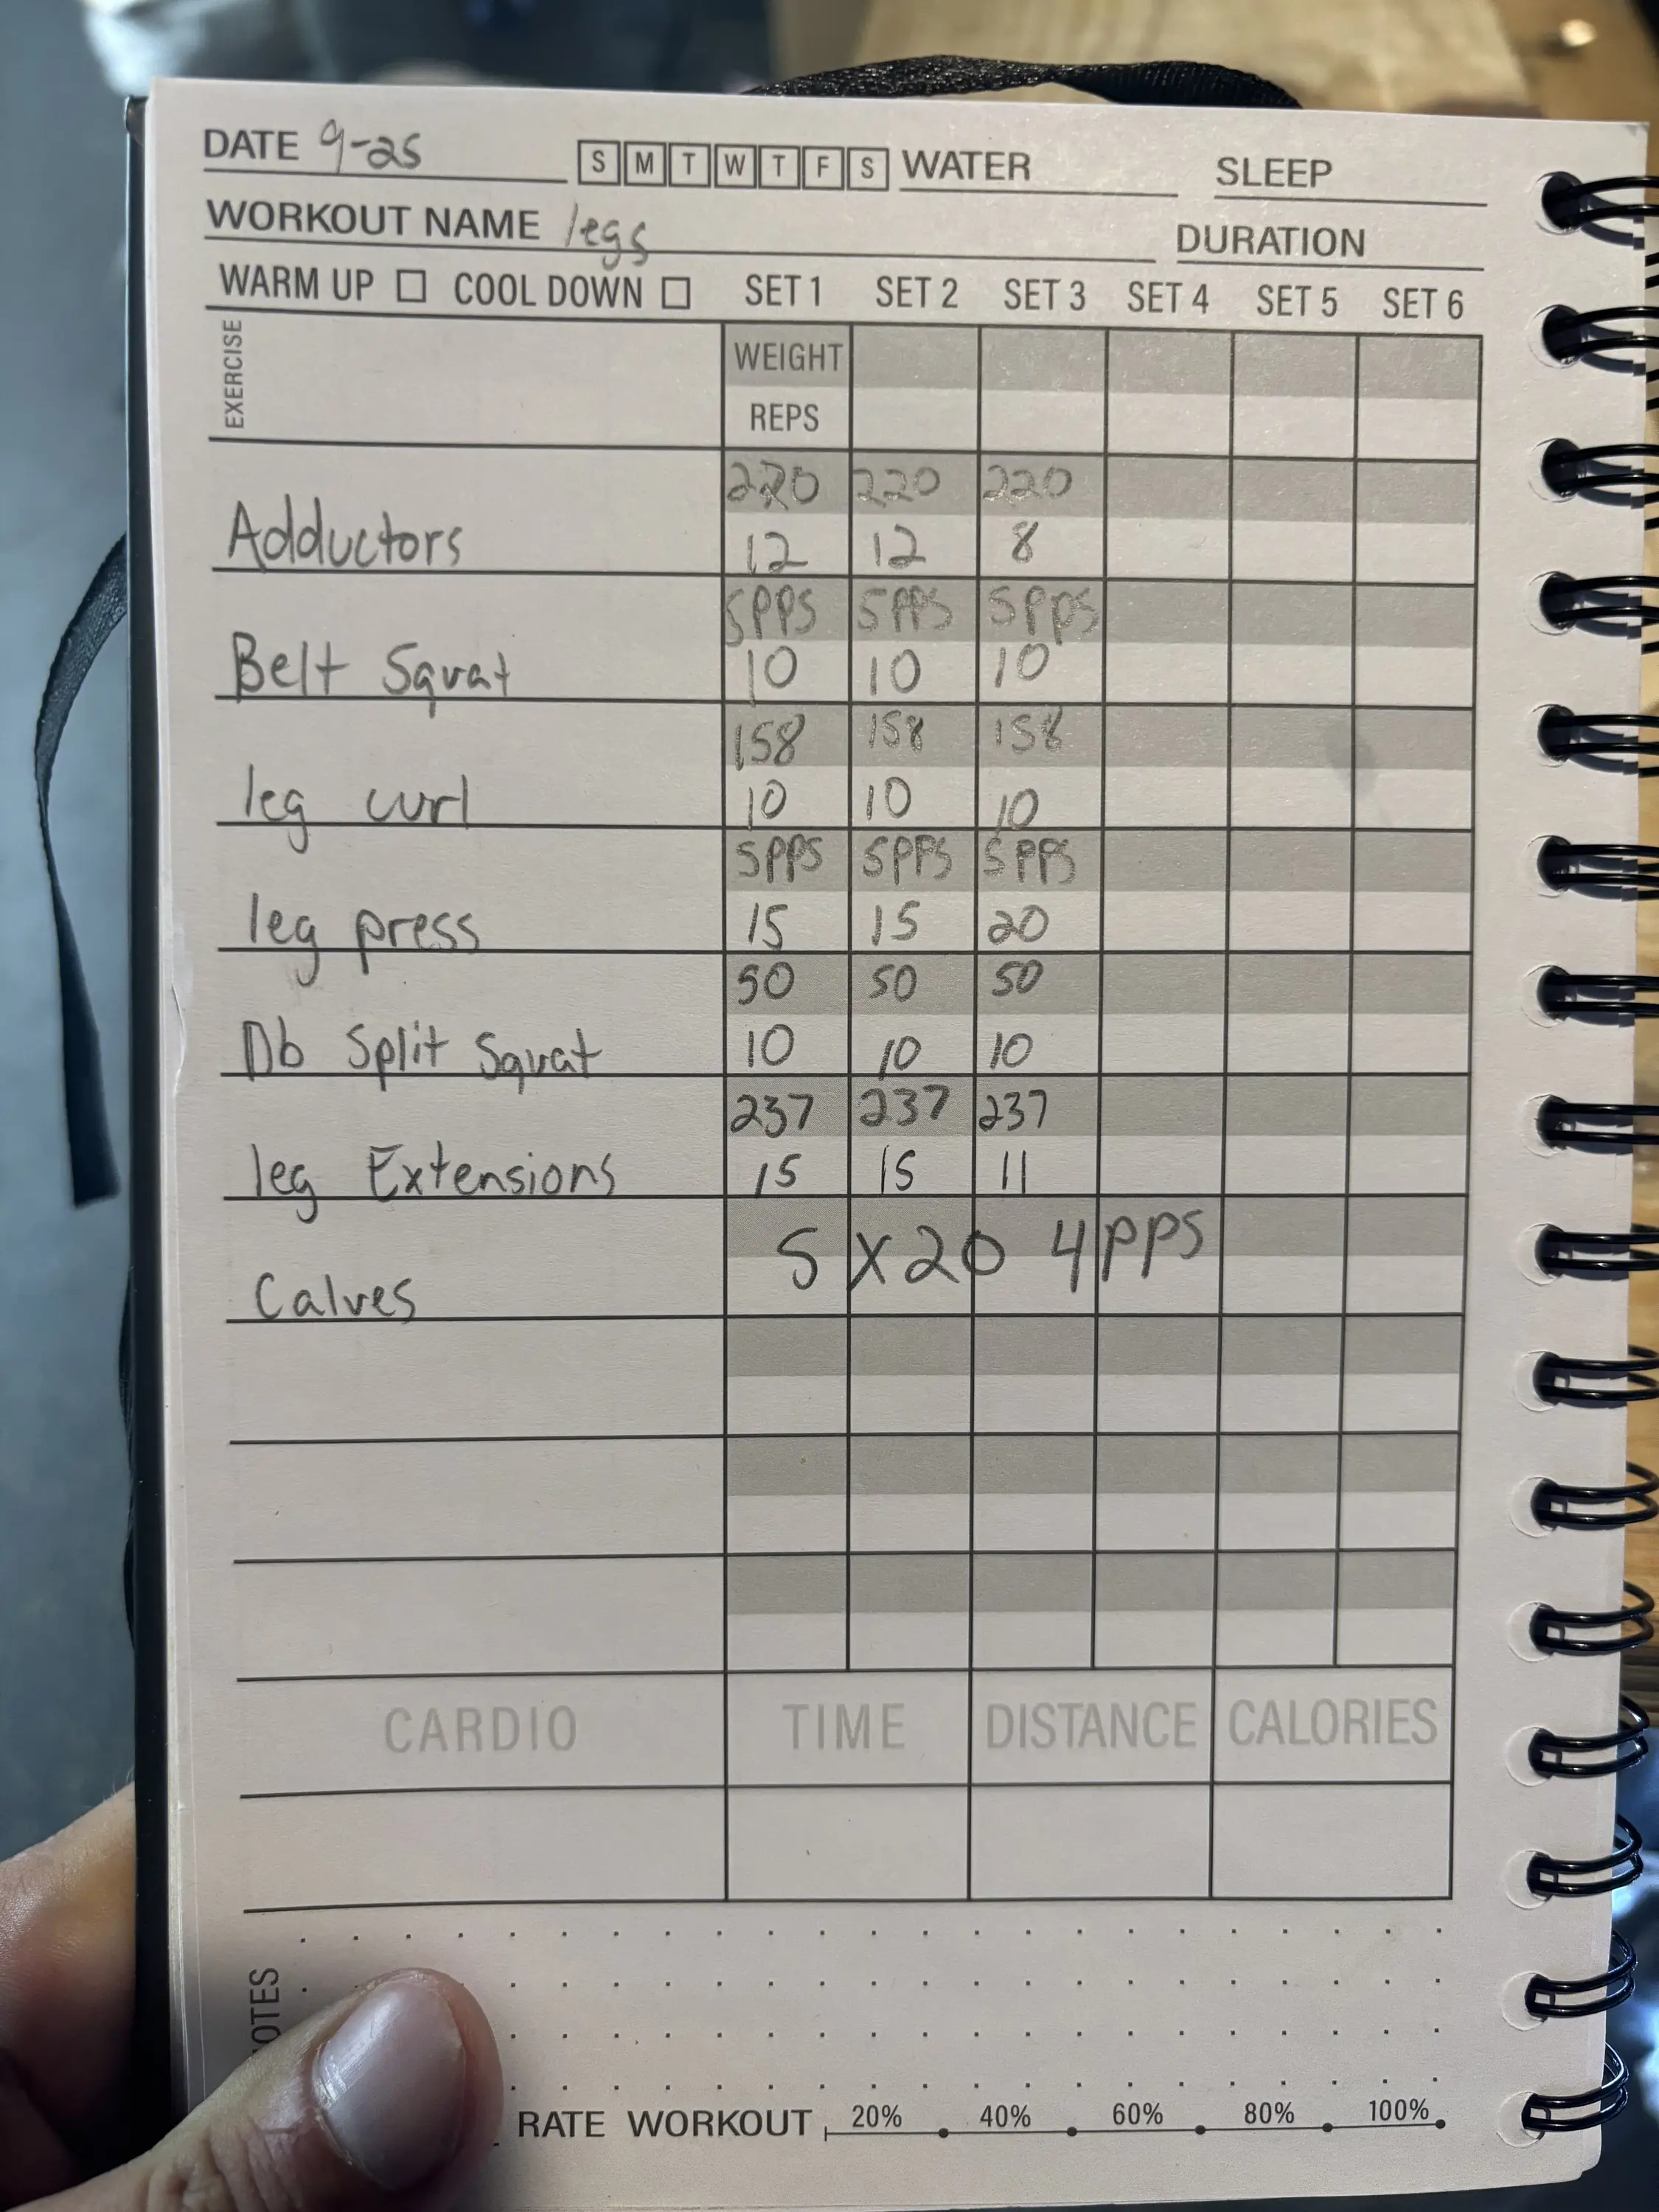 DATE 9-25 S M T W T F S WATER SLEEP
WORKOUT NAME legs DURATION
WARM UP COOL DOWN SET 1 SET 2 SET 3 SET 4 SET 5 SET 6
EXERCISE
WEIGHT
REPS
220 220 220
Adductors 12 12 8
5PPS 5PPS 5PPS
Belt Squat 10 10 10
158 158 158
leg curl 10 10 10
5PPS 5PPS 5PPS
leg press 15 15 20
50 50 50
Db Split Squat 10 10 10
237 237 237
leg Extensions 15 15 11
5 x 20 4PPS
Calves
CARDIO TIME DISTANCE CALORIES
OTES
RATE WORKOUT 20% 40% 60% 80% 100%